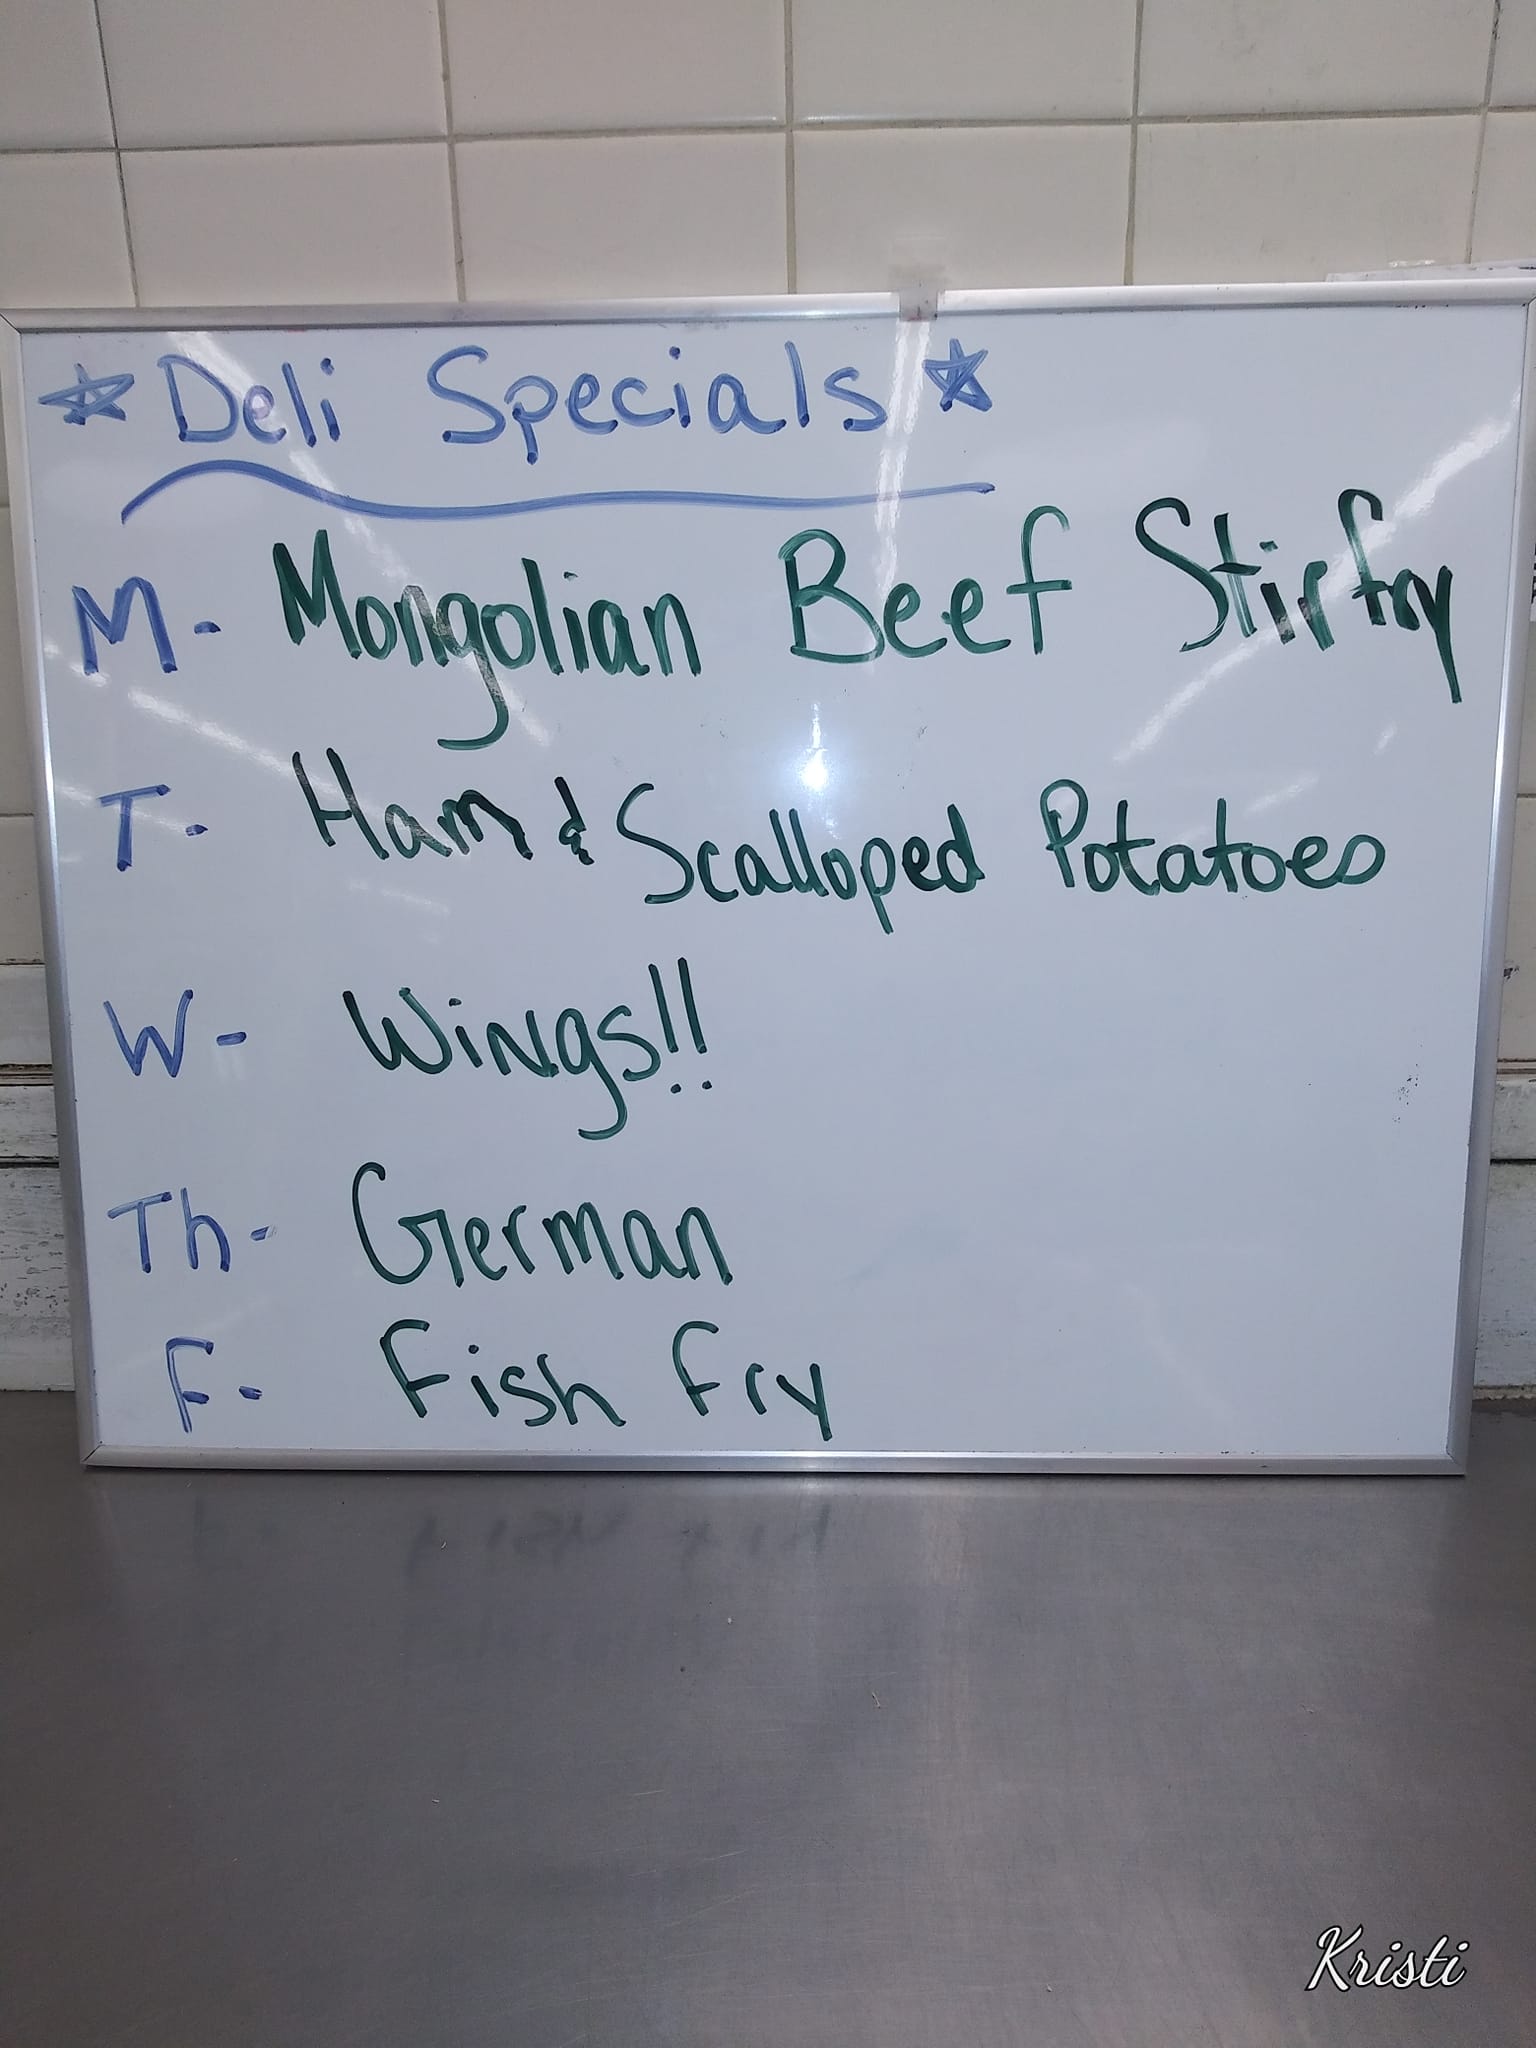 ☆Deli Specials☆
M- Mongolian Beef Stirfry
T- Ham & Scalloped Potatoes
W- Wings!!
Th- German
F- Fish Fry
Kristi